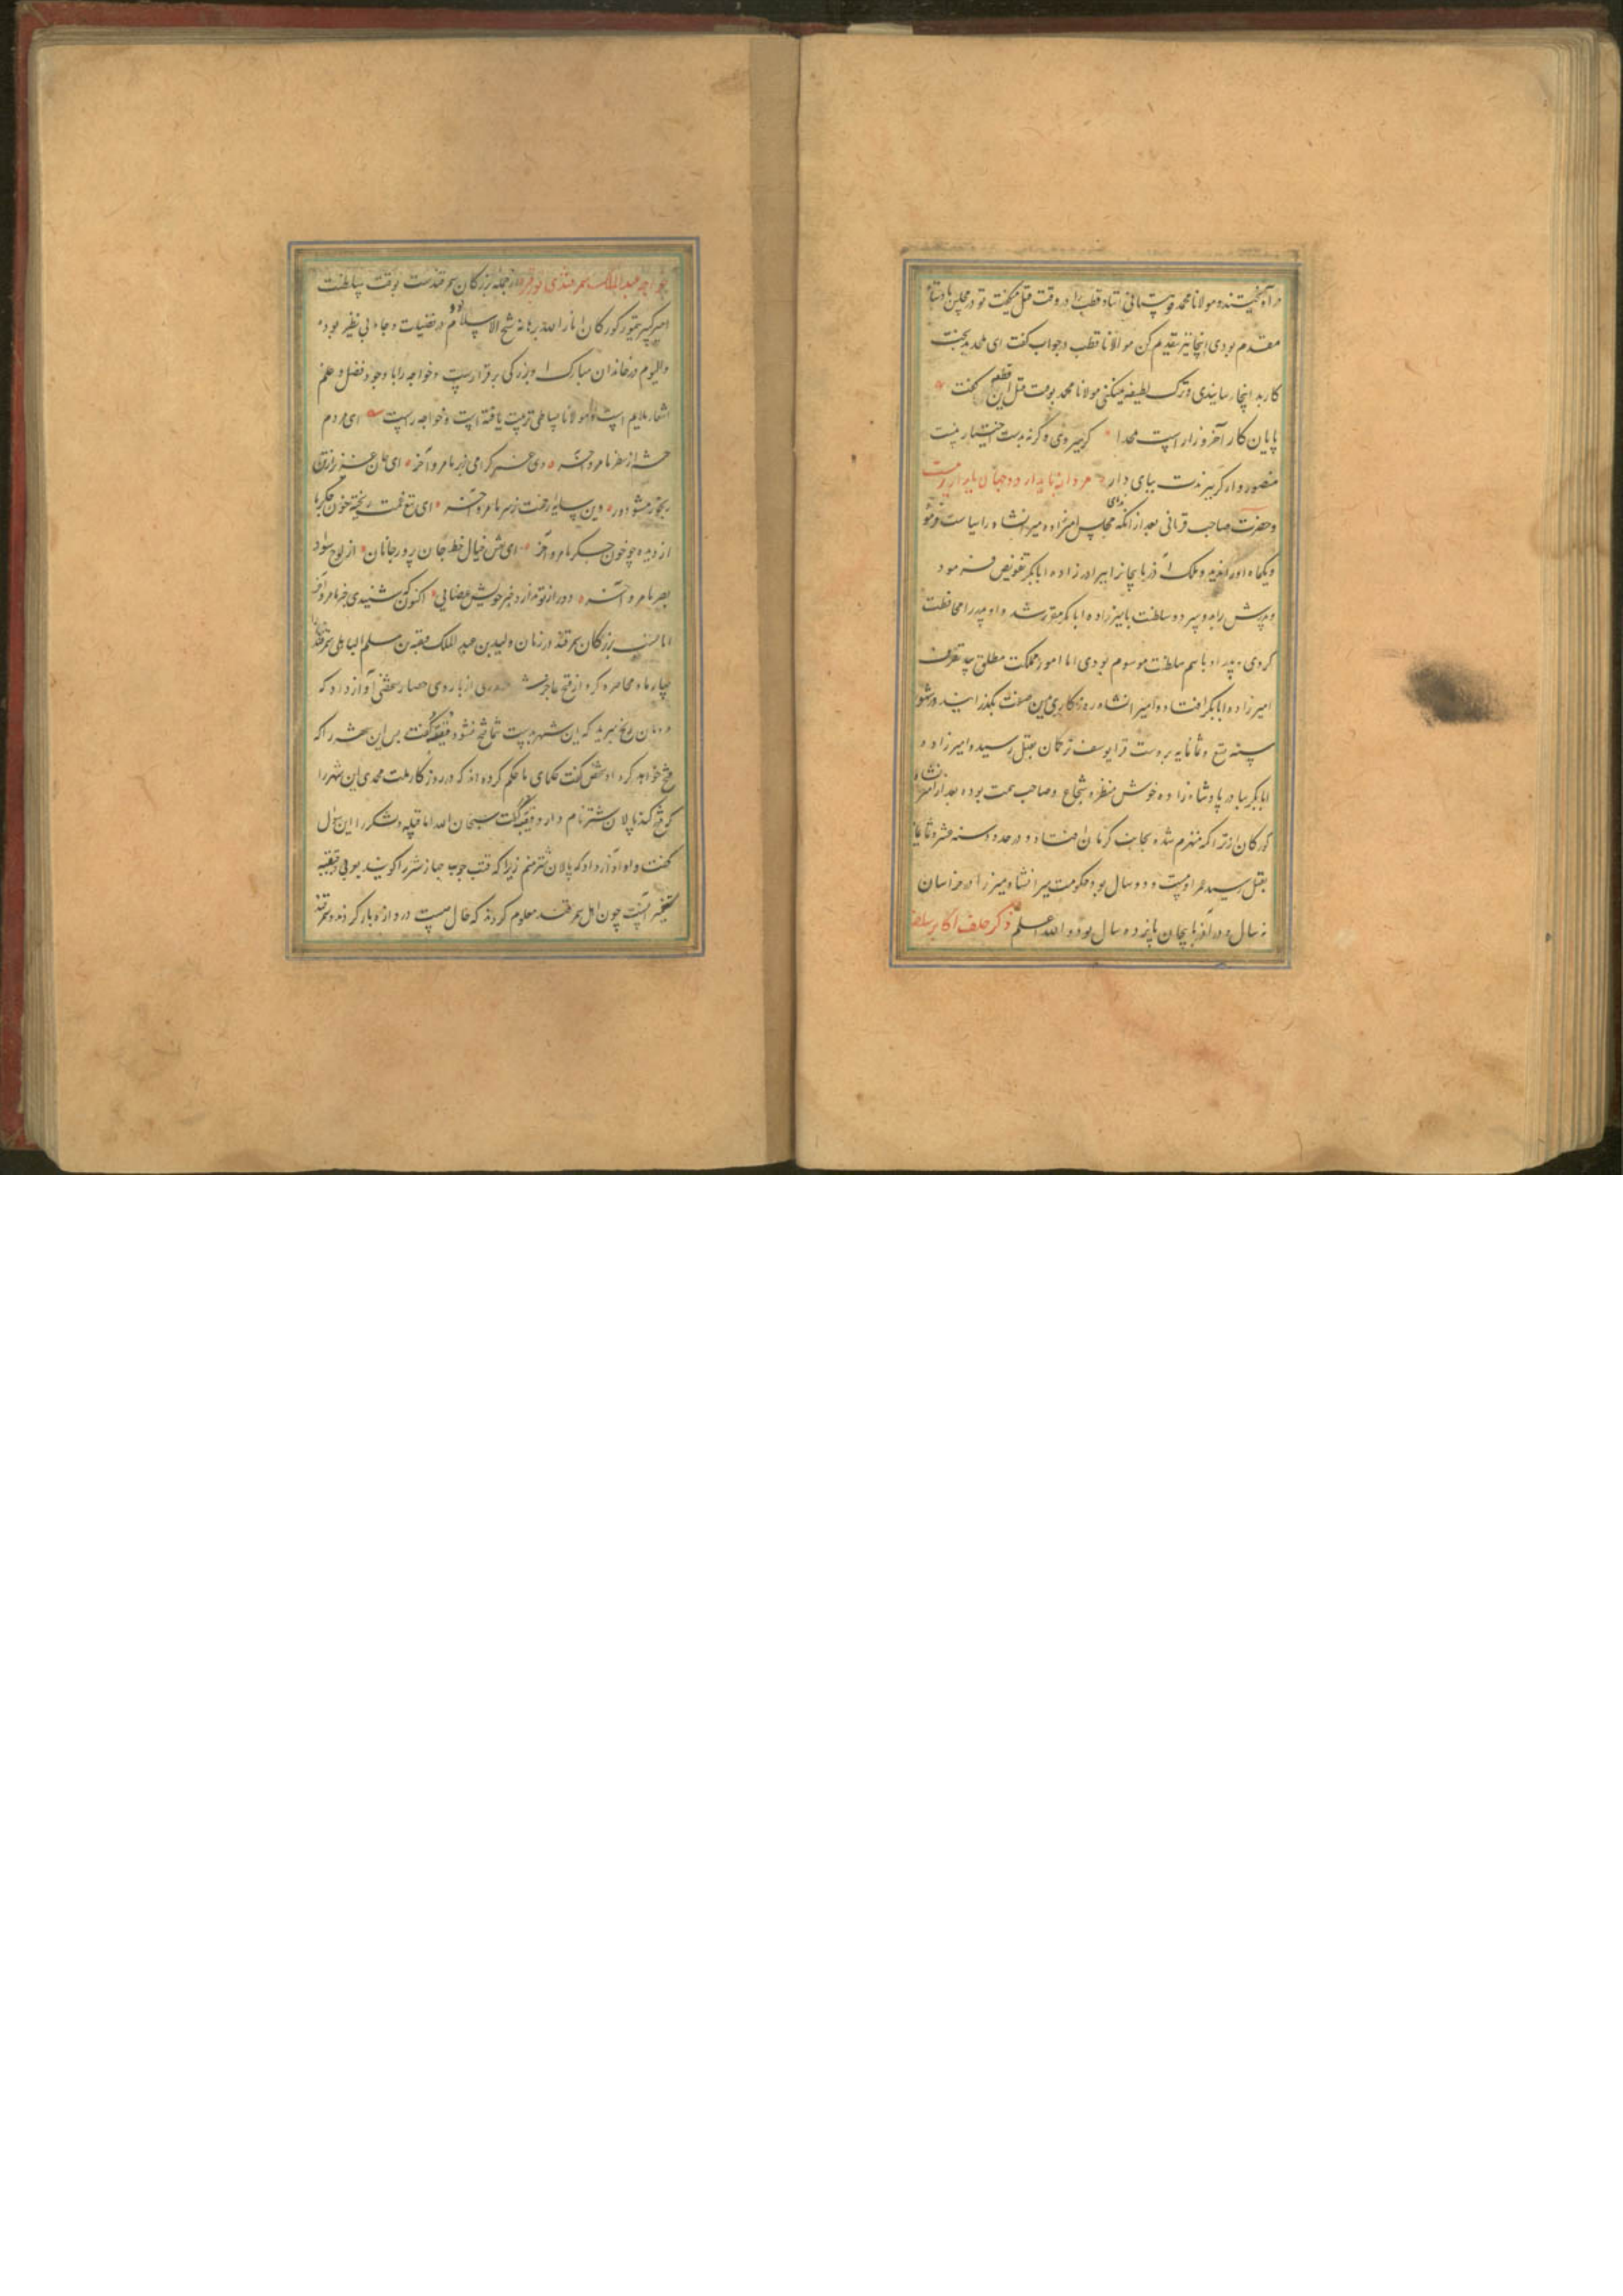 در آویختند و مولانا محمد قهستانی استاد قطب را در وقت قتل میگفت تو در مجلس پادشاه
مقدم بودی اینجا نیز تقدیم کن مولانا قطب در جواب گفت ای ملحد بدبخت
کار بد اینجا رسانیدی و ترک لطیفه نمیکنی مولانا محمد بوقت قتل این قطعه گفت
پایان کار آخر و زار است ملحدا گر میروی و گرنه بدست اختیار نیست
منصوروار گر ببرندت بپای دار مردانه پایدار که دنیا پایدار نیست
و حضرت صاحب قرانی بعد از آنکه ندمای مجلس امیرزاده میرانشاه را سیاست فرمود
و یکماه او را ندید و ملک آذربایجانرا بمیرزاده ابابکر تفویض فرمود
و پدرش را بدو سپرد و سلطنت بامیرزاده ابابکر مقرر شد و او پدر را محافظت
کردی و پدر او باسم سلطنت موسوم بودی اما امور مملکت مطلق بید تصرف
امیرزاده ابابکر افتاد و امیرانشاه روزگاری بدین صفت بگذرانید و در شهور
سنه تسع و ثمانمایه بر دست قرا یوسف ترکمان بقتل رسید و امیرزاده
ابابکر بهادر پادشاه زاده خوش منظر و شجاع و صاحب همت بوده بعد از امیرانشاه
کورکان از تراکمه منهزم شده بجانب کرمان افتاد و در حدود سنه عشر و ثمانمایه
بقتل رسید عمر او بیست و دو سال بود حکومت میرانشاه میرزا در خراسان
نه سال و در آذربایجان پانزده سال بود و الله اعلم ذکر خلف اکابر سلف
خواجه عبدالملک سمرقندی نور قبره از جمله بزرگان سمرقندست بوقت سلطنت
امیر کبیر تیمور کورکان انار الله برهانه شیخ الاسلام بود و در فضیلت و جاه بی نظیر بود
والیوم در خاندان مبارک او بزرگی برقرارست و خواجه را با وجود فضل و علم
اشعار ملایم است و مولانا بساطی تربیت یافته اوست و خواجه راست ای مردم
چشم از نظر ما مرو آخر وی عمر گرامی ز بر ما مرو آخر ای جان عزیز از تن
رنجور مشو دور وین سایه رحمت ز سر ما مرو آخر ای تیغ غمت ریخته خون جگر ما
از دیده چو خون جگر ما مرو آخر ای نقش خیال خط جان پرور جانان از لوح سواد
بصر ما مرو آخر دور از تو ندارد خبر خویش عصامی اکنون که شنیدی خبر ما مرو آخر
اما نسب بزرگان سمرقند در زمان ولید بن عبد الملک قتیبه بن مسلم الباهلی سمرقند را
چهار ماه محاصره کرد از فتح عاجز شد روزی از باروی حصار شخصی آواز داد که
رنج نبرید که این شهر بدست شما فتح نشود قتیبه گفت پس این شهر را که
فتح خواهد کرد او شخص گفت حکمای ما حکم کرده اند که در روزگار ملت محمدی این شهر را
کسی فتح کند که پالان شتر نام دارد قتیبه گفت سبحان الله انا قتیبه و لشکر را این سؤال
گفت و او آواز داد که پالان شتر منم زیرا که قتب چوب جهاز شتر را گویند بعربی و قتیبه
تصغیر آنست چون اهل سمرقند معلوم کردند که حال چیست دروازه باز کردند و سمرقند